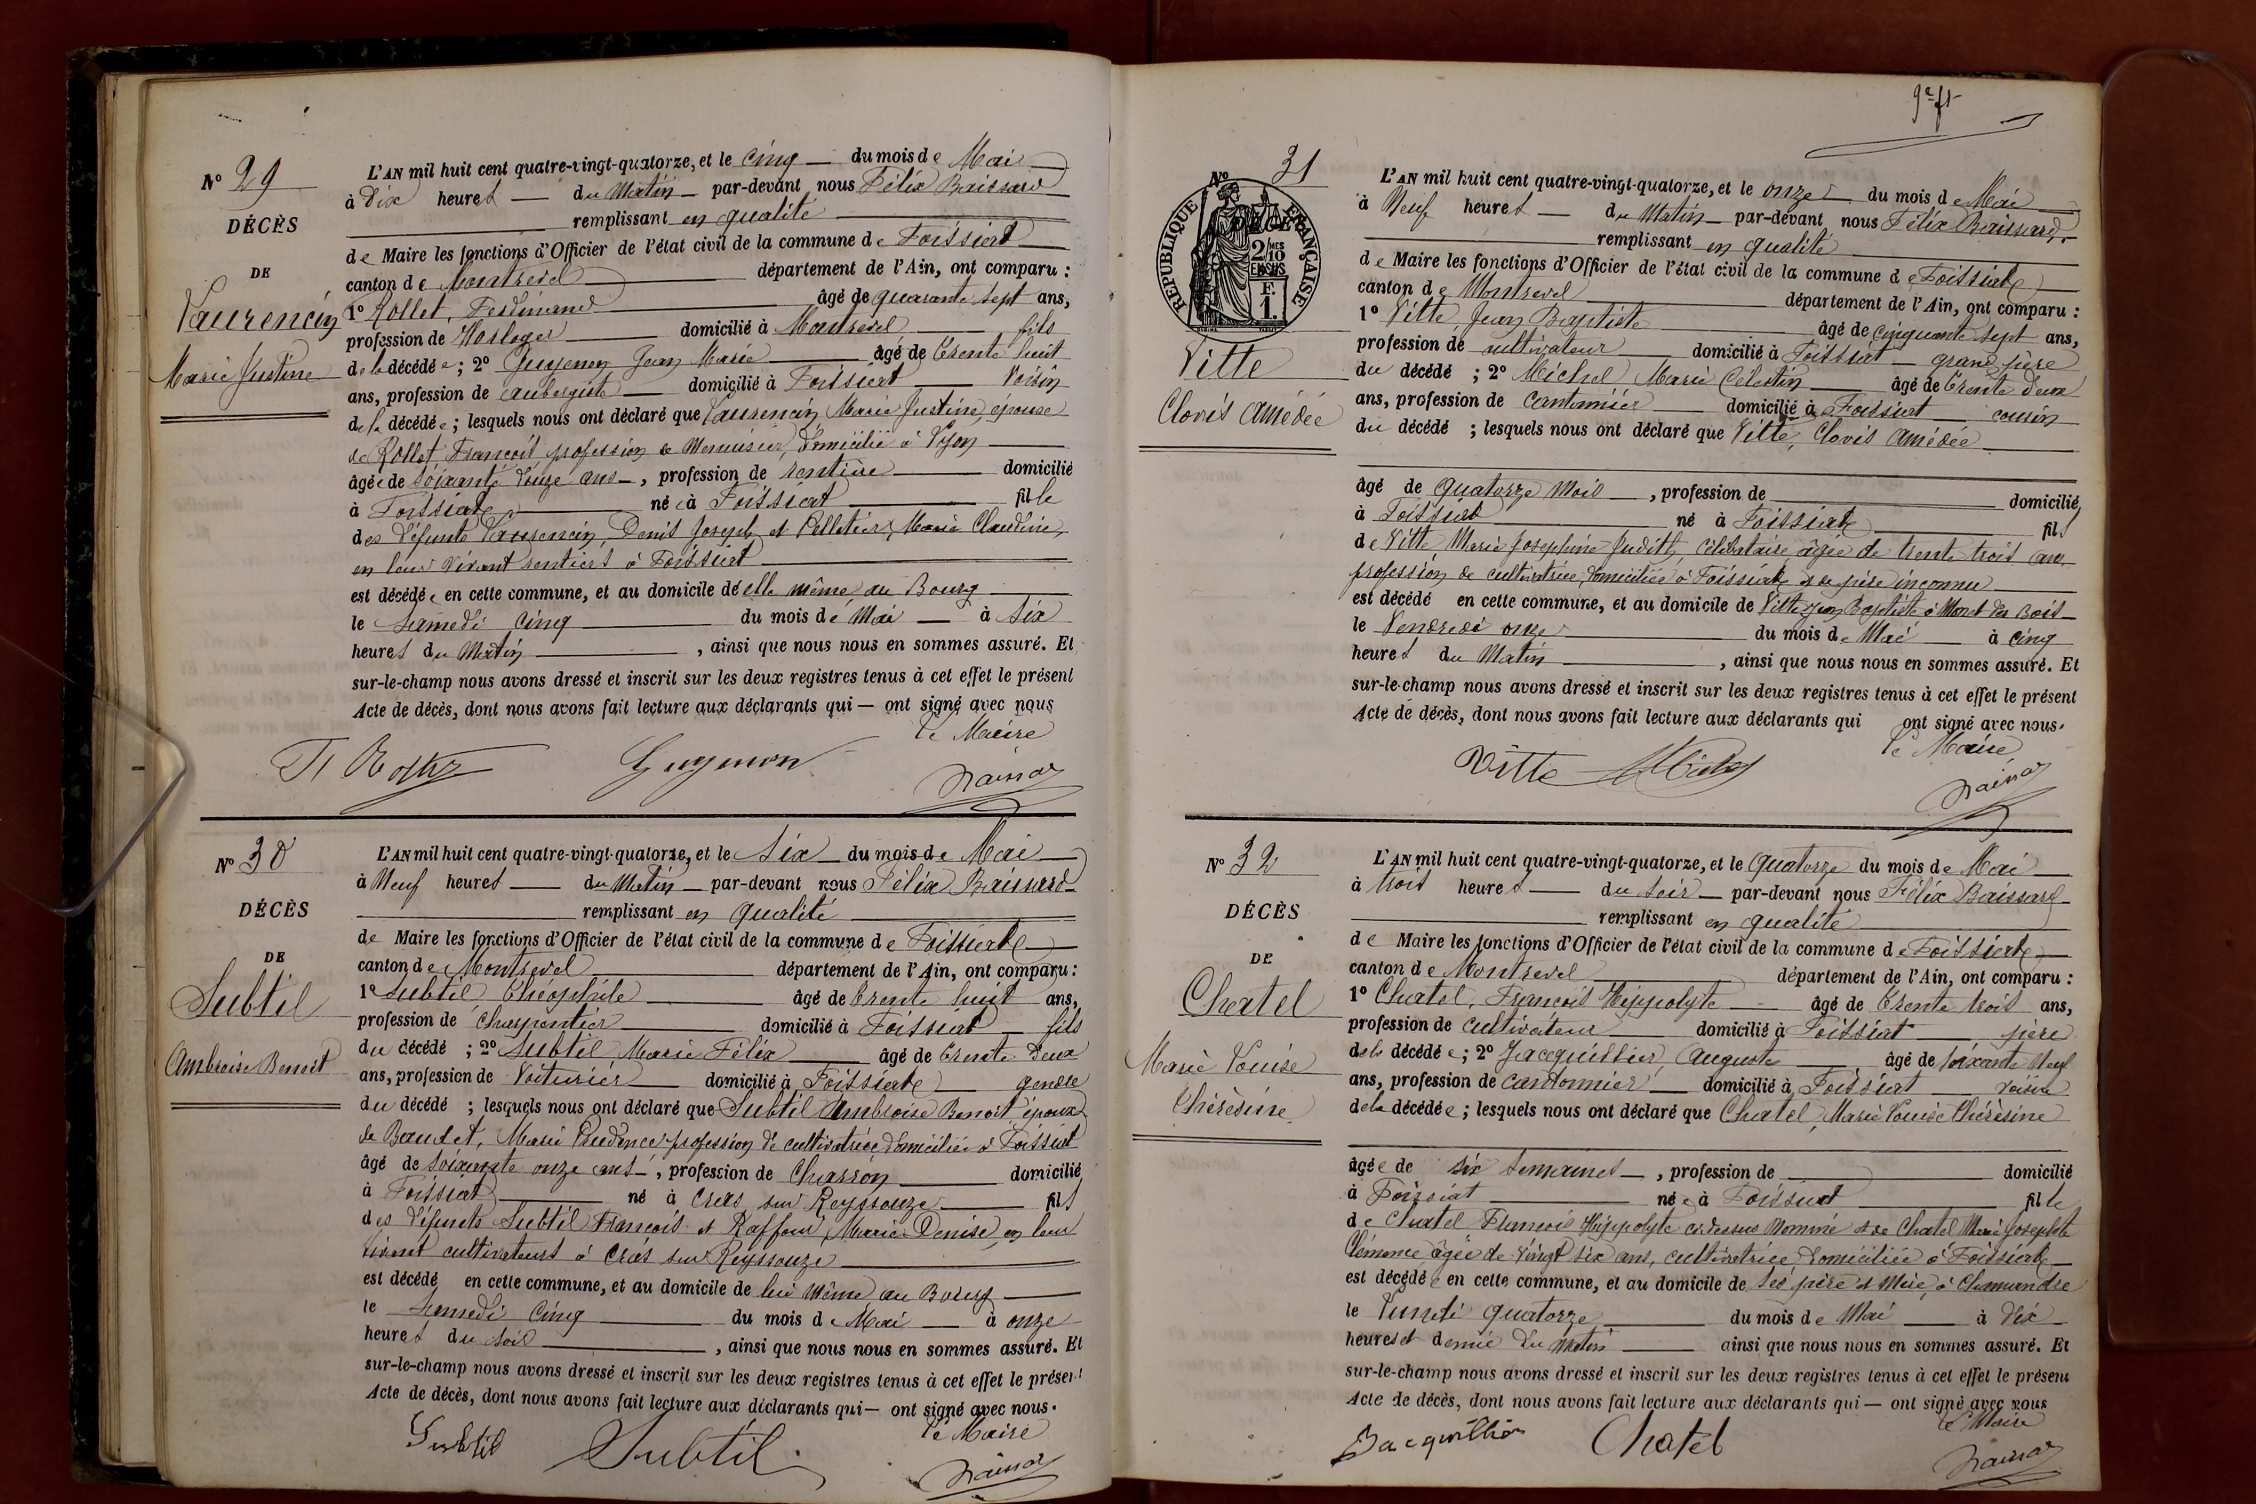 Nº 29
DÉCÈS
DE
Laurencin
Marie Justine
L'AN mil huit cent quatre-vingt-quatorze, et le cinq du mois de Mai
à Dix heures du Matin par-devant nous Félix Baissard
remplissant en qualité
de Maire les fonctions d'Officier de l'état civil de la commune de Foissiat
canton de Montrevel département de l'Ain, ont comparu :
1º Rollet, Ferdinand âgé de quarante sept ans,
profession de Horloger domicilié à Montrevel fils
de la décédée ; 2º Guyenon Jean Marie âgé de trente huit
ans, profession de aubergiste domicilié à Foissiat voisin
de la décédée ; lesquels nous ont déclaré que Laurencin Marie Justine, épouse
de Rollet François profession de Menuisier, domicilié à
âgée de soixante douze ans, profession de rentière domicilié
à Foissiat née à Foissiat fille
des défunts Laurencin, Denis Joseph et Pelletier, Marie Claudine,
en leur vivant rentiers à Foissiat
est décédée en cette commune, et au domicile de elle même au Bourg
le Samedi cinq du mois de Mai à six
heures du Matin, ainsi que nous nous en sommes assuré. Et
sur-le-champ nous avons dressé et inscrit sur les deux registres tenus à cet effet le présent
Acte de décès, dont nous avons fait lecture aux déclarants qui — ont signé avec nous
Le Maire
Guyenon
Nº 30
DÉCÈS
DE
Subtil
Ambroise Benoit
L'AN mil huit cent quatre-vingt-quatorze, et le Six du mois de Mai
à Neuf heures du Matin par-devant nous Félix Baissard
remplissant en qualité
de Maire les fonctions d'Officier de l'état civil de la commune de Foissiat
canton de Montrevel département de l'Ain, ont comparu :
1º Subtil, Théophile âgé de trente huit ans,
profession de Charpentier domicilié à Foissiat fils
du décédé ; 2º Subtil, Marie Félix âgé de trente deux
ans, profession de Voiturier domicilié à Foissiat gendre
du décédé ; lesquels nous ont déclaré que Subtil Ambroise Benoit époux
de Baudet, Marie Prudence profession de cultivatrice domiciliée à Foissiat
âgé de soixante onze ans, profession de Charron domicilié
à Foissiat né à Cras sur Reyssouze fils
des défunts Subtil François et Raffour, Marie Denise, en leur
vivant cultivateurs à Cras sur Reyssouze
est décédé en cette commune, et au domicile de lui même au Bourg
le Samedi cinq du mois de Mai à onze
heures du soir, ainsi que nous nous en sommes assuré. Et
sur-le-champ nous avons dressé et inscrit sur les deux registres tenus à cet effet le présent
Acte de décès, dont nous avons fait lecture aux déclarants qui — ont signé avec nous.
Le Maire
Subtil Subtil
Nº 31
RÉPUBLIQUE FRANÇAISE
DÉCÈS
2/10 EN SUS
F. 1.
Vitte
Clovis Amédée
L'AN mil huit cent quatre-vingt-quatorze, et le onze du mois de Mai
à Neuf heures du Matin par-devant nous Félix Baissard
remplissant en qualité
de Maire les fonctions d'Officier de l'état civil de la commune de Foissiat
canton de Montrevel département de l'Ain, ont comparu :
1º Vitte Jean Baptiste âgé de cinquante sept ans,
profession de cultivateur domicilié à Foissiat grand père
du décédé ; 2º Michel Marie Célestin âgé de trente deux
ans, profession de cantonnier domicilié à Foissiat cousin
du décédé ; lesquels nous ont déclaré que Vitte, Clovis Amédée
âgé de quatorze mois, profession de domicilié
à Foissiat né à Foissiat fils
de Vitte Marie Josephine Judith, célibataire âgée de trente trois ans
profession de cultivatrice, domiciliée à Foissiat et de père inconnu
est décédé en cette commune, et au domicile de Vitte Jean Baptiste à Mont des Bois
le Vendredi onze du mois de Mai à cinq
heures du Matin, ainsi que nous nous en sommes assuré. Et
sur-le-champ nous avons dressé et inscrit sur les deux registres tenus à cet effet le présent
Acte de décès, dont nous avons fait lecture aux déclarants qui ont signé avec nous.
Le Maire
Vitte
Nº 32
DÉCÈS
DE
Chatel
Marie Louise
Thérèsine
L'AN mil huit cent quatre-vingt-quatorze, et le quatorze du mois de Mai
à trois heures du soir par-devant nous Félix Baissard
remplissant en qualité
de Maire les fonctions d'Officier de l'état civil de la commune de Foissiat
canton de Montrevel département de l'Ain, ont comparu :
1º Chatel, François Hippolyte âgé de trente trois ans,
profession de cultivateur domicilié à Foissiat père
de la décédée ; 2º Jacquillier, Auguste âgé de soixante neuf
ans, profession de cantonnier domicilié à Foissiat voisin
de la décédée ; lesquels nous ont déclaré que Chatel, Marie Louise Thérèsine
âgée de six semaines, profession de domicilié
à Foissiat née à Foissiat fille
de Chatel François Hippolyte ci-dessus nommé et de Chatel Marie Josephte
Clémence âgée de vingt six ans, cultivatrice domiciliée à Foissiat
est décédée en cette commune, et au domicile de ses père et mère, à Chamandre
le Lundi quatorze du mois de Mai à dix
heures et demie du matin ainsi que nous nous en sommes assuré. Et
sur-le-champ nous avons dressé et inscrit sur les deux registres tenus à cet effet le présent
Acte de décès, dont nous avons fait lecture aux déclarants qui — ont signé avec nous
Le Maire
Jacquillier Chatel